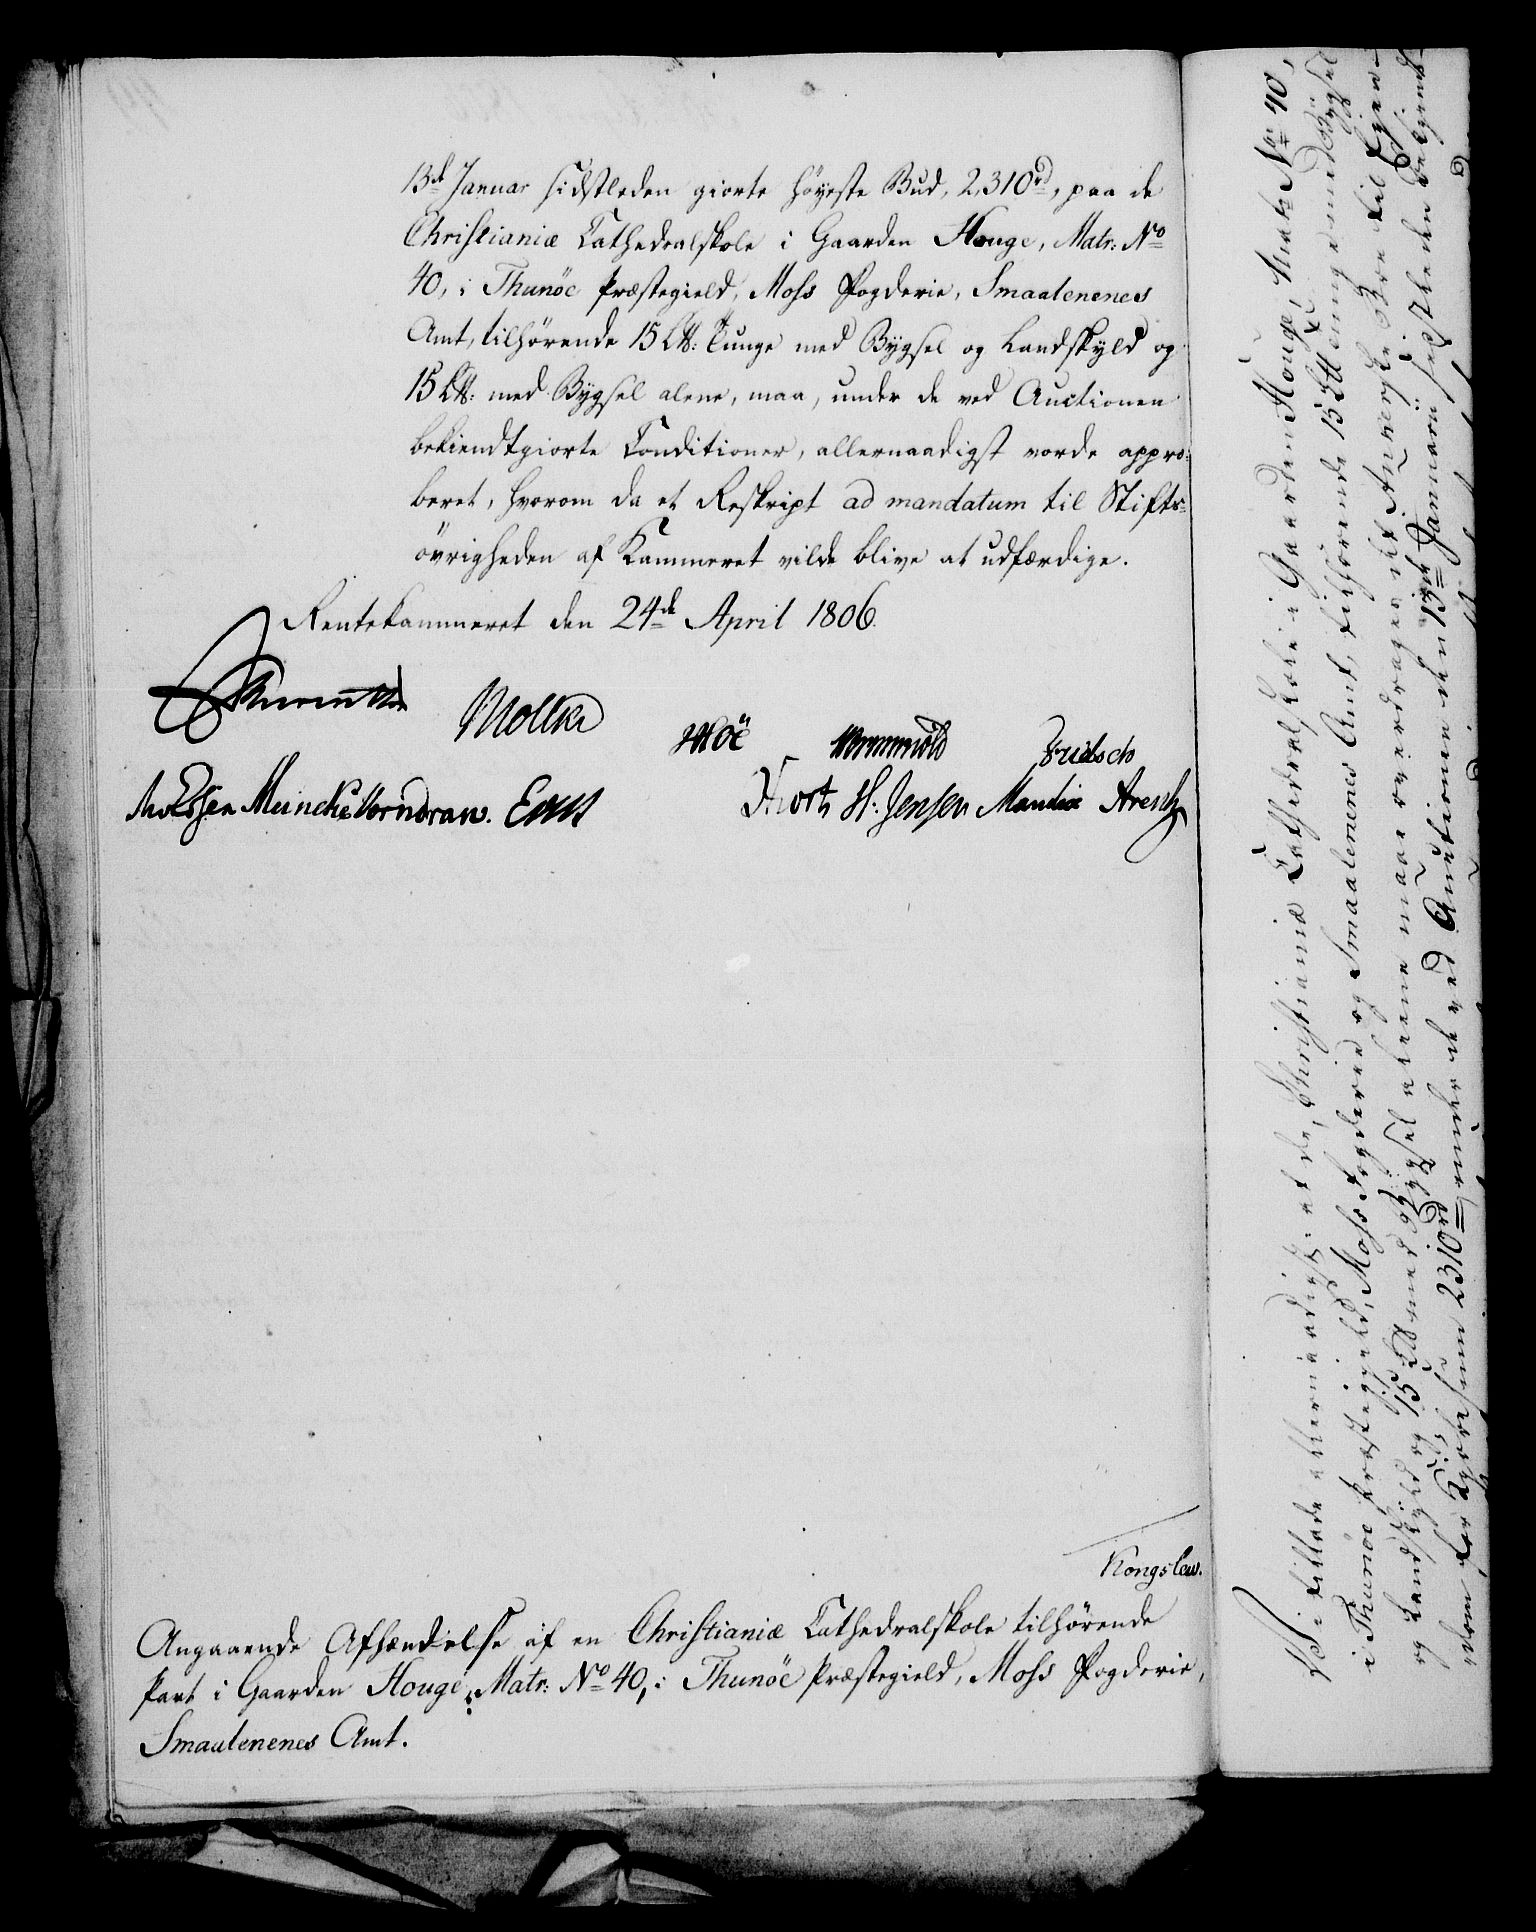 13de Januar sidstleden giorte höyeste Bud, 2310rd, paa de
Christianiæ Cathedralskole i Gaarden Houge, Matr: No
40, i Thunöe Præstegield, Moss Fogderie, Smaalenenes
Amt, tilhørende 15 L℔: Tunge med Bygsel og Landskyld og
15 L℔: med Bygsel alene, maa, under de ved Auctionen
bekiendtgiorte Conditioner, allernaadigst vorde appro-
beret, hvorom da et Reskript ad mandatum til Stifts-
övrigheden af Kammeret vilde blive at udfærdige.
Rentekammeret den 24de April 1806.
Moltke
Wormskiold
Fritsch
Meincke Worndran.
H: Jensen Manthey Arentz
Kongslew.
Angaaende Afhændelse af en Christianiæ Cathedralskole tilhørende
Part i Gaarden Houge, Matr: No 40, i Thunöe Præstegield, Moss Fogderie,
Smaalenenes Amt.
Vi tillade allernaadigst: at de, Christianiæ Cathedralskole i Gaarden Houge, Matr: No 40,
i Thunöe Præstegield, Moss Fogderie og Smaalenenes Amt, tilhørende 15 L℔ Tunge med Bygsel
og Landskyld og 15 L℔ med Bygsel alene maae overdrages til Eiendom
ved Auctionen den 13de Januarii sidstleden